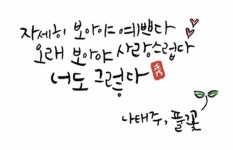 자세히 보아야 예쁘다
오래 보아야 사랑스럽다
너도 그렇다
나태주, 풀꽃